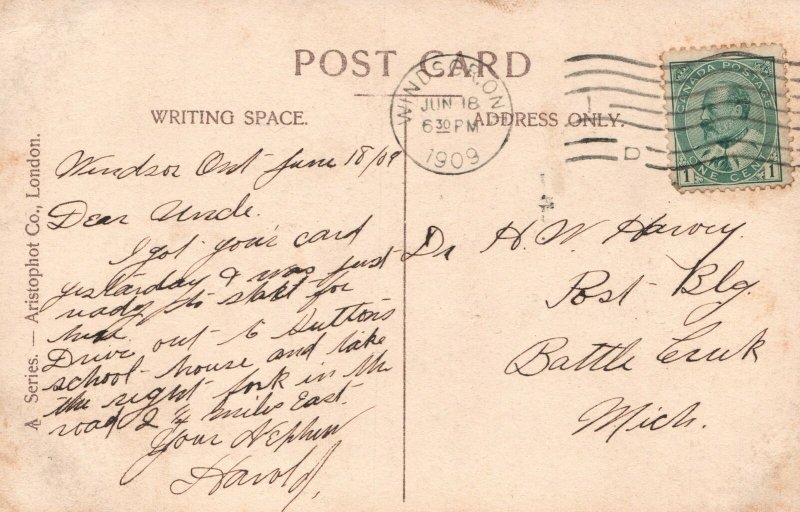 POST CARD
WRITING SPACE.
ADDRESS ONLY.
A Series. — Aristophot Co., London.
WINDSOR, ONT
JUN 18
6 30 PM
1909
D
CANADA POSTAGE
1 ONE CENT 1
Windsor Ont June 18/09
Dear Uncle.
I got your card
yestarday & was just
ready to start for
Drive out to Huttons
school-house and take
the right fork in the
road 2 ¼ miles East.
Your Nephew
Harold,
Dr H. W. Harvey
Post Blg.
Battle Creek
Mich.